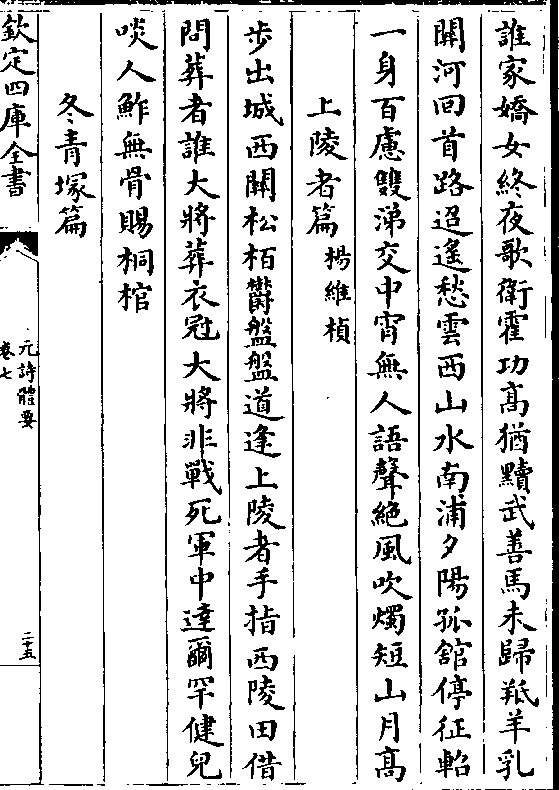 誰家嬌女終夜歌衛霍功髙猶黷武善馬未歸羝羊乳
闗河回首路迢遙愁雲西山水南浦夕陽孤舘停征軺
一身百慮雙涕交中宵無人語聲絶風吹燭短山月髙
上陵者篇 楊維楨
步出城西闗松栢鬱盤盤道逢上陵者手指西陵田借
問葬者誰大將葬衣冠大將非戰死軍中達爾罕健兒
啖人鮓無骨賜桐棺
冬青塚篇
欽定四庫全書
元詩體要
卷七
二十五